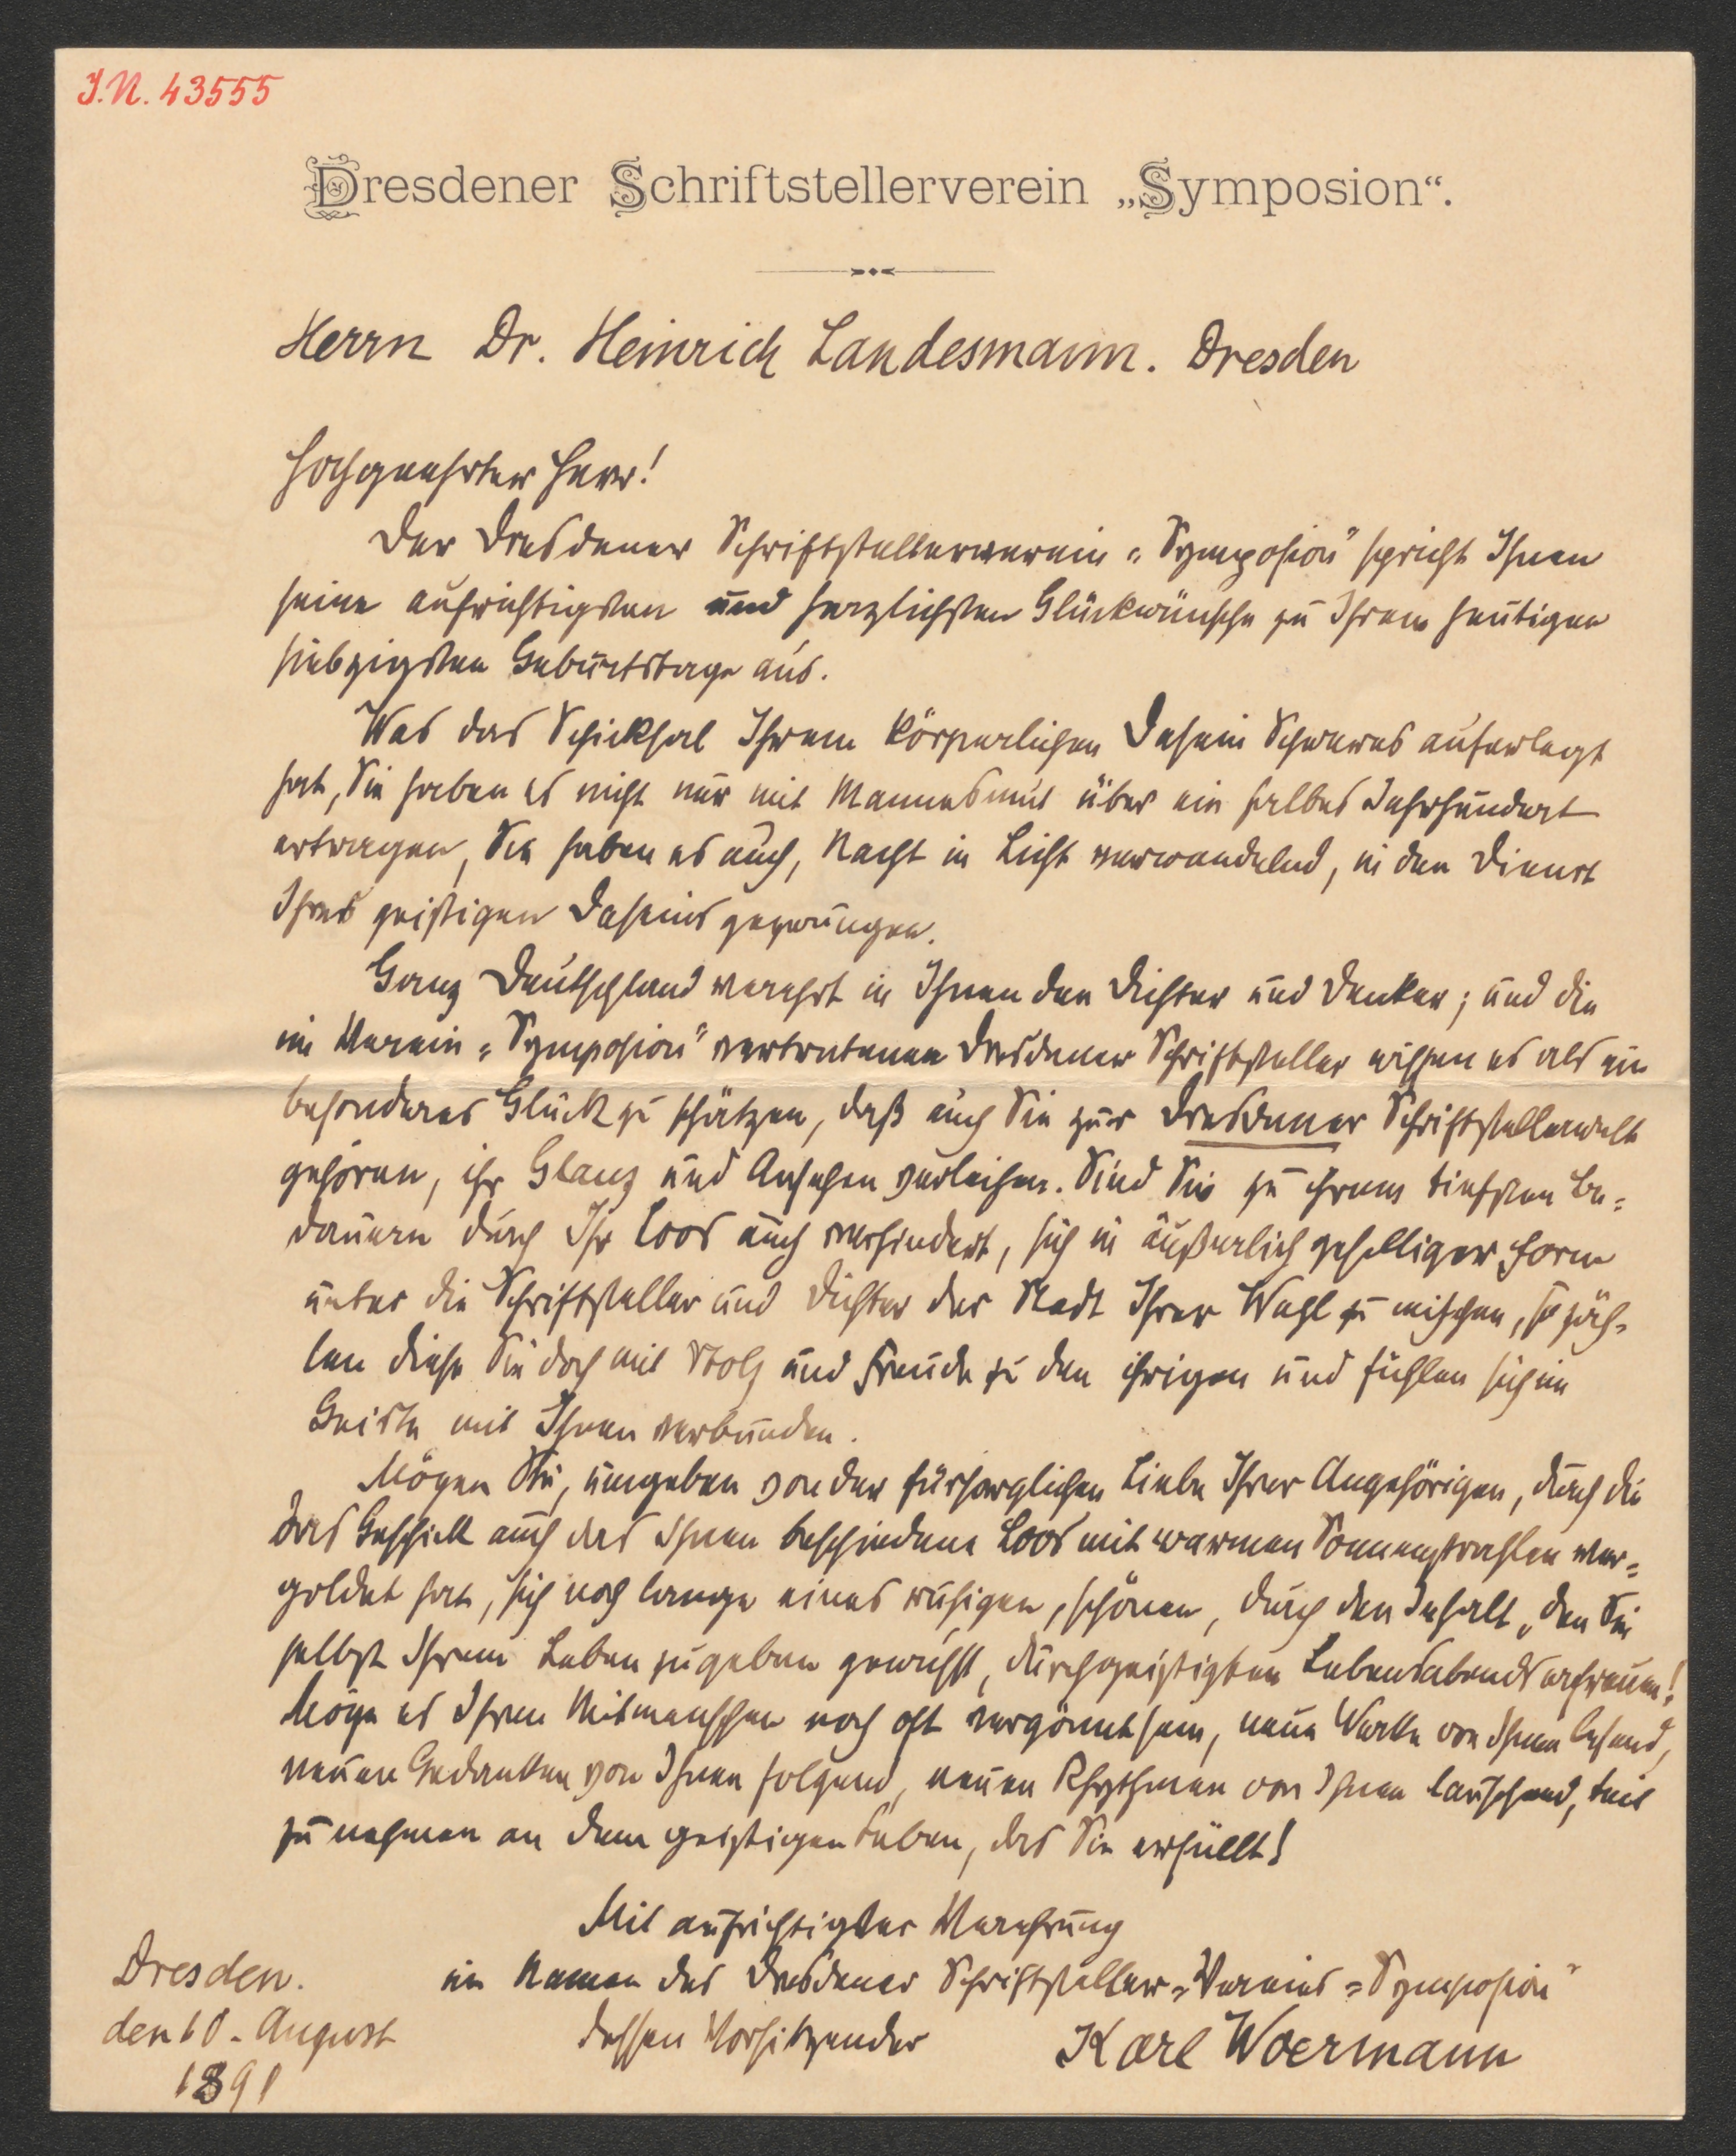 J.N. 43555
Dresdener Schriftstellerverein „Symposion“.
Herrn Dr. Heinrich Landesmann. Dresden
Hochgeehrter Herr!
Der Dresdener Schriftstellerverein „Symposion" spricht Ihnen
seine aufrichtigsten und herzlichsten Glückwünsche zu Ihrem heutigen
siebzigsten Geburtstage aus.
Was das Schicksal Ihrem körperlichen Dasein Schweres auferlegt
hat, Sie haben es nicht nur mit Mannesmut über ein halbes Jahrhundert
ertragen, Sie haben es auch, Nacht in Licht verwandelnd, in den Dienst
Ihres geistigen Daseins gezwungen.
Ganz Deutschland verehrt in Ihnen den Dichter und Denker; und die
im Verein „Symposion" vertretenen Dresdener Schriftsteller wissen es als ein
besonderes Glück zu schätzen, daß auch Sie zur Dresdener Schriftstellerwelt
gehören, ihr Glanz und Ansehen verleihen. Sind Sie zu ihrem tiefsten Be-
dauern durch Ihr Loos auch verhindert, sich in äußerlich geselliger Form
unter die Schriftsteller und Dichter der Stadt Ihrer Wahl zu mischen, so zäh-
len diese Sie doch mit Stolz und Freude zu den ihrigen und fühlen sich im
Geiste mit Ihnen verbunden.
Mögen Sie, umgeben von der fürsorglichen Liebe Ihrer Angehörigen, durch die
das Geschick auch das Ihnen beschiedene Loos mit warmen Sonnenstrahlen ver-
goldet hat, sich noch lange eines ruhigen, schönen, durch den Inhalt, den Sie
selbst Ihrem Leben zu geben gewußt, durchgeistigten Lebensabends erfreuen!
Möge es Ihren Mitmenschen noch oft vergönnt sein, neue Werke von Ihnen lesend,
neuen Gedanken von Ihnen folgend, neuen Rhythmen von Ihnen lauschend, teil
zu nehmen an dem geistigen Leben, das Sie erfüllt!
Mit aufrichtigster Verehrung
im Namen des Dresdener Schriftsteller-Vereins „Symposion"
dessen Vorsitzender
Karl Woermann
Dresden.
den 10. August
1891